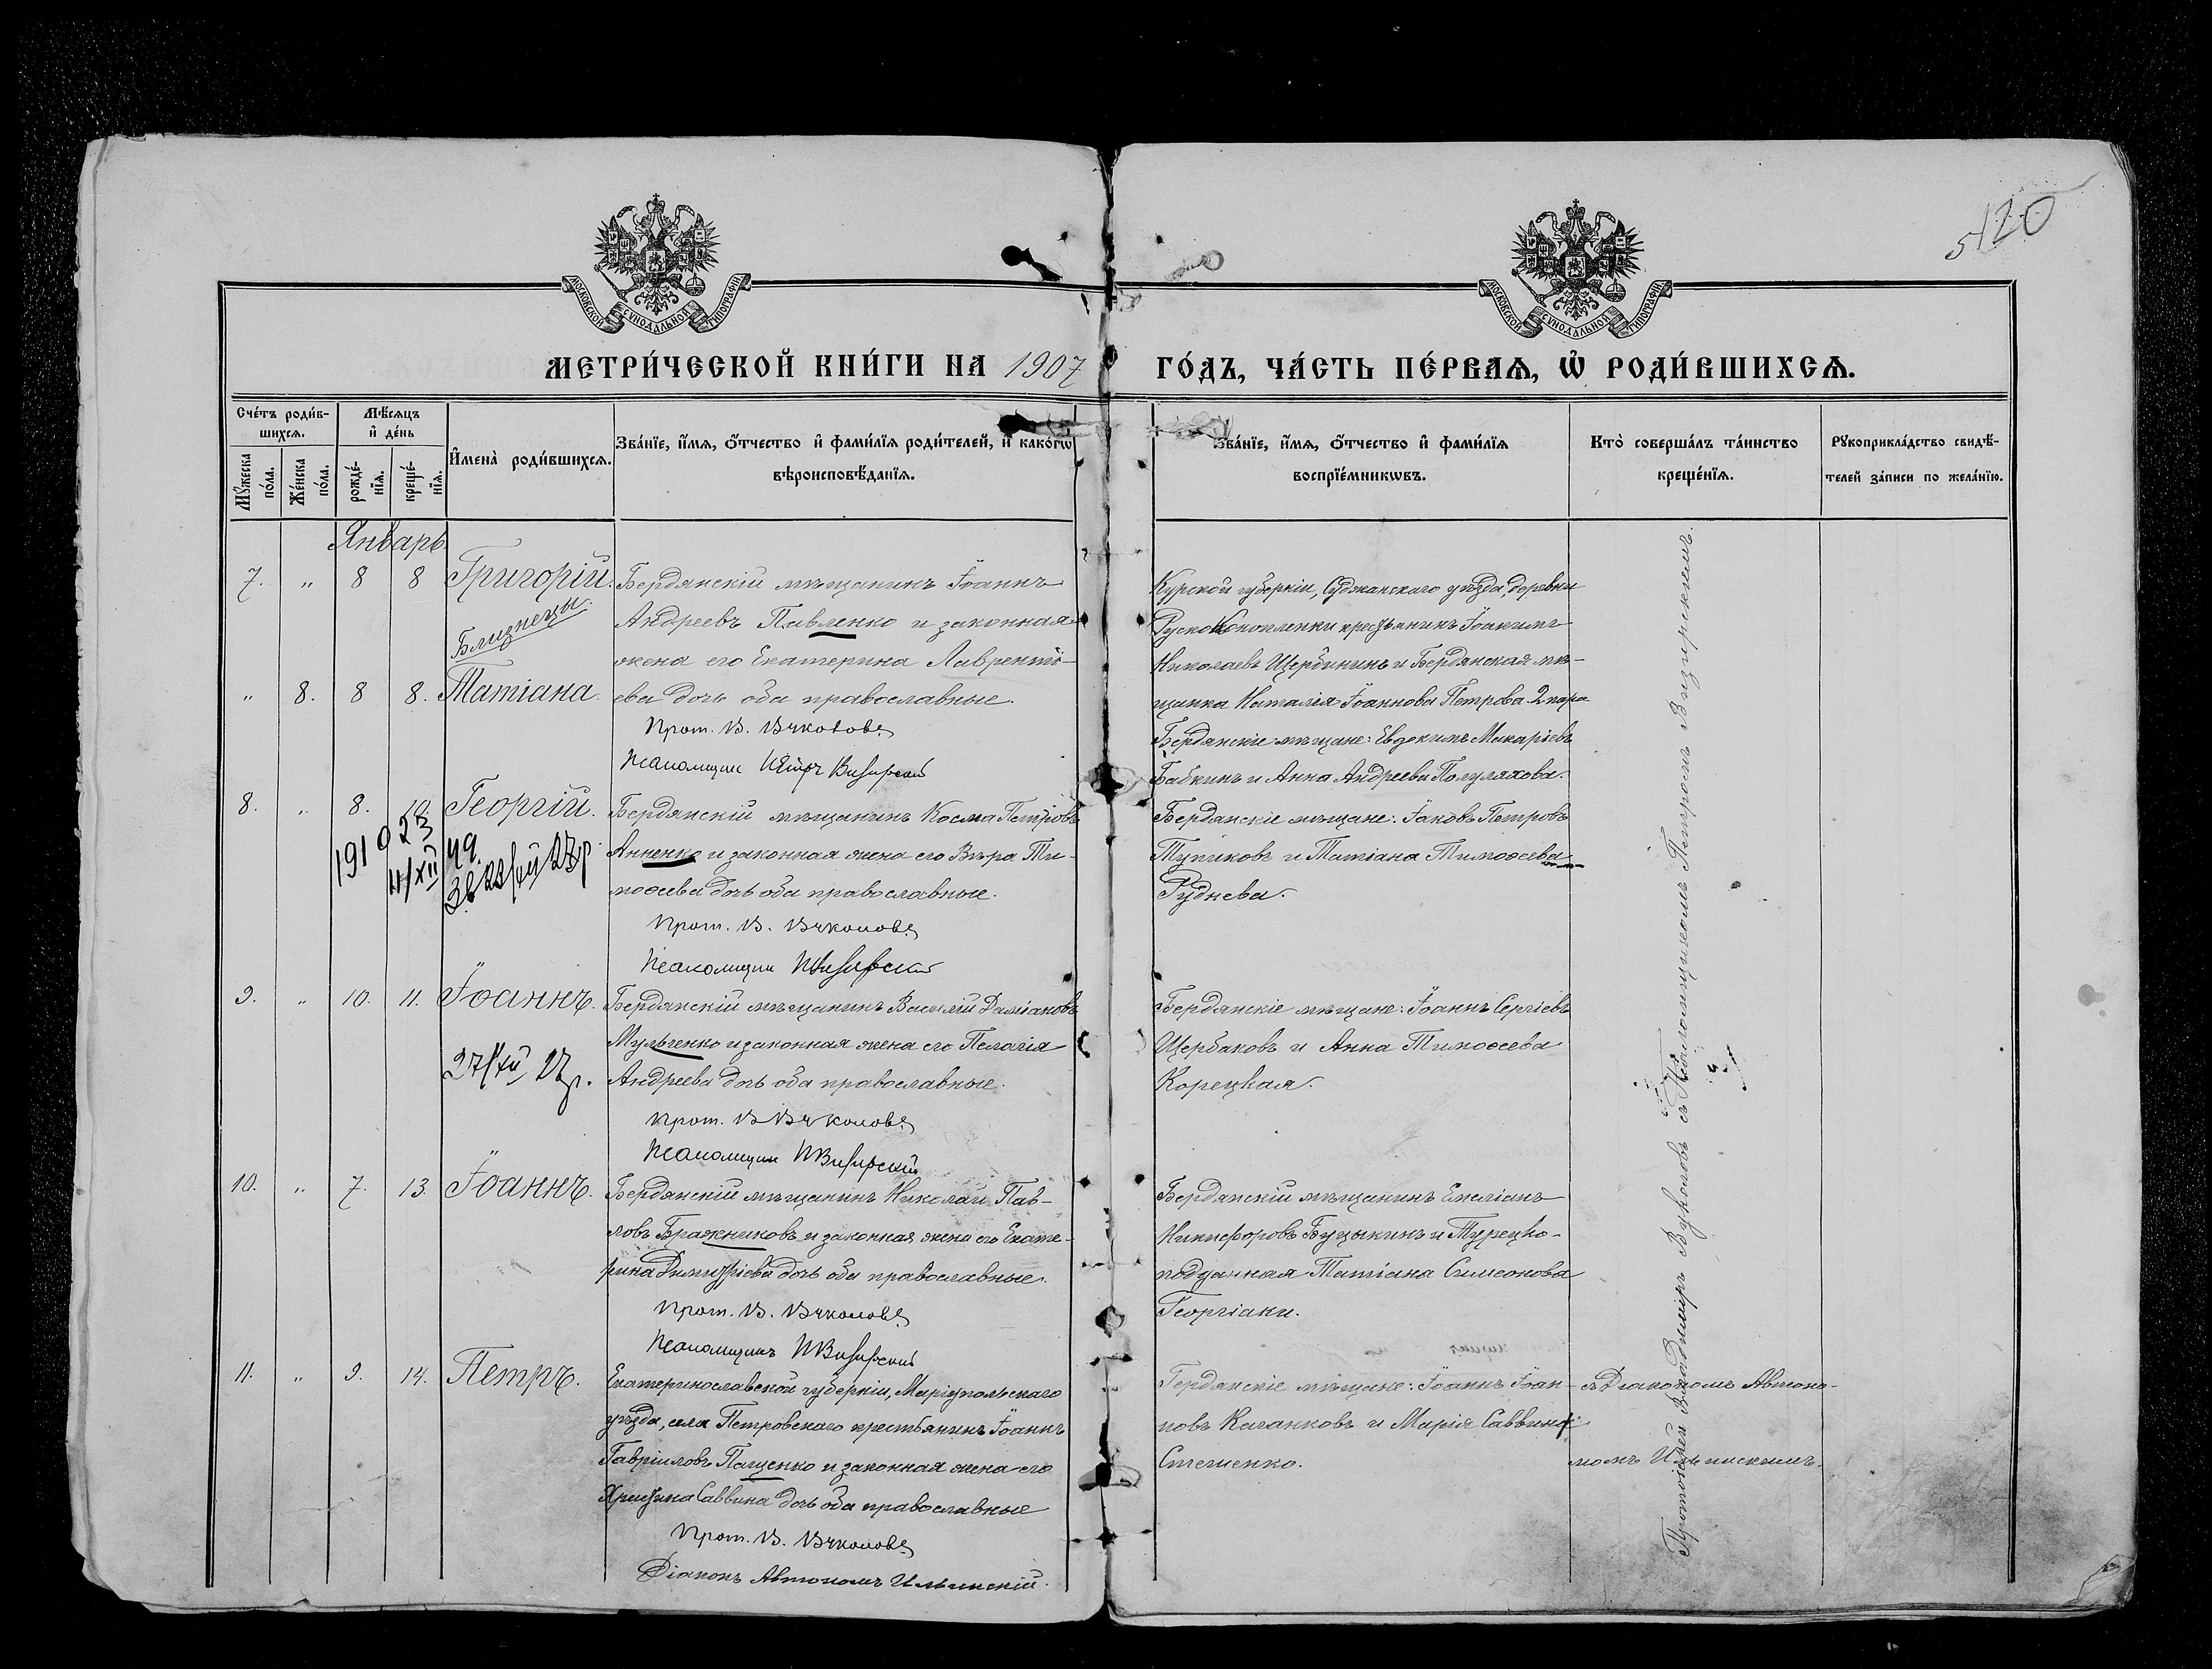 5 120
МОСКОВСКОЙ СѴНОДАЛЬНОЙ ТИПОГРАФІИ
МОСКОВСКОЙ СѴНОДАЛЬНОЙ ТИПОГРАФІИ
МЕТРИ́ЧЕСКОЙ КНИ́ГИ НА 1907 ГО́ДЪ, ЧА́СТЬ ПЕ́РВАѦ, Ѽ РОДИ́ВШИХСѦ.
Сче́тъ роди́в-
шихсѧ.
Мѣ́сѧцъ
и҆ де́нь
Мꙋ́жеска по́ла.
Же́нска по́ла.
рожде́-
нїѧ.
креще́-
нїѧ.
И҆мена̀ роди́вшихсѧ.
Зва́нїе, и҆́мѧ, ѻ҆́тчество и҆ фами́лїѧ роди́телей, и҆ како́гѡ
вѣроисповѣ́данїѧ.
Зва́нїе, и҆́мѧ, ѻ҆́тчество и҆ фами́лїѧ
воспрїе́мникѡвъ.
Кто̀ соверша́лъ та́инство
креще́нїѧ.
Рꙋкоприкла́дство свидѣ́-
телей за́писи по жела́нїю.
Январь
7. " 8 8 Григорій.
Близнецы.
" 8. 8 8. Татіана.
Бердянскій мѣщанинъ Іоаннъ
Андреевъ Павленко и законная
жена его Екатерина Лавренті-
ева дочь оба православные.
Прот. В. Вуколовъ
Псаломщик Петръ Визирский
Курской губерніи, Суджанскаго уѣзда, деревни
Руской Конопленки крестьянинъ Іоакимъ
Николаевъ Щербининъ и Бердянская мѣ-
щанка Наталія Іоаннова Петрова 2 пара
Бердянскіе мѣщане: Евдокимъ Макаріевъ
Бабкинъ и Анна Андреева Полулякова.
8. " 8. 10. Георгій.
Бердянскій мѣщанинъ Косма Петровъ
Анненко и законная жена его Вѣра Ти-
моѳеева дочь оба православные.
Прот. В. Вуколовъ
Псаломщик ПВизирский
Бердянскіе мѣщане: Іаковъ Петровъ
Тупиковъ и Татіана Тимоѳеева
Руднева.
9. " 10. 11. Іоаннъ.
27/XII 27г.
Бердянскій мѣщанинъ Василій Даміановъ
Мульченко и законная жена его Пелагія
Андреева дочь оба православные.
Прот. В Вуколовъ
Псаломщик ПВизирский
Бердянскіе мѣщане: Іоаннъ Сергіевъ
Щербаковъ и Анна Тимоѳеева
Корецкая.
10. " 7. 13. Іоаннъ.
Бердянскій мѣщанинъ Николай Пав-
ловъ Бражниковъ и законная жена его Екате-
рина Димитріева дочь оба православные.
Прот. В. Вуколовъ
Псаломщикъ ПВизирский
Бердянскій мѣщанинъ Емеліанъ
Никифоровъ Буцыкинъ и Турецко-
подданная Татіана Симеонова
Георгіаки.
11. " 9. 14. Петръ.
Екатеринославской губерніи, Маріупольскаго
уѣзда, села Петровскаго крестьянинъ Іоаннъ
Гавріиловъ Пащенко и законная жена его
Христина Саввина дочь оба православные
Прот. В. Вуколовъ
Діаконъ Автономъ Ильинскій.
Бердянскіе мѣщане: Іоаннъ Іоан-
новъ Каганковъ и Марія Саввина
Стешенко.
съ Діакономъ Автоно-
момъ Ильинскимъ.
Протоіерей Владиміръ Вуколовъ съ Псаломщикомъ Петромъ Визирскимъ.